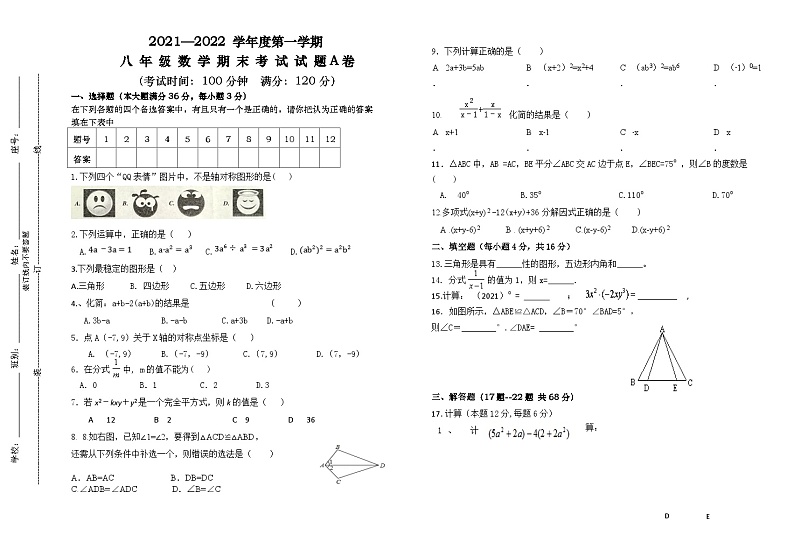 2021—2022 学年度第一学期
八 年 级 数 学 期 末 考 试 试 题 A 卷
(考试时间: 100 分钟 满分: 120 分)
一、选择题（本大题满分 36 分，每小题 3 分）
在下列各题的四个备选答案中，有且只有一个是正确的，请你把认为正确的答案
填在下表中
题号 1 2 3 4 5 6 7 8 9 10 11 12
答案
1.下列四个“QQ 表情”图片中，不是轴对称图形的是( )
A. B. C. D.
2.下列运算中，正确的是（ ）
A. 4a − 3a = 1 B. a·a² = a³ C. 3a⁶ ÷ a³ = 3a² D. (ab²)² = a²b²
3.下列最稳定的图形是（ ）
A.三角形 B. 四边形 C.五边形 D.六边形
4.、化简：a+b-2(a+b)的结果是 （ ）
A.3b-a B.-a-b C.a+3b D.-a+b
5．点 A（-7,9）关于 X 轴的对称点坐标是（ ）
A. （-7,9） B.(-7，-9) C.(7,9) D.(7，-9)
6．在分式 1/m 中，m 的值不能为( )
A．0 B．1 C．2 D.3
7．若 x²－kxy＋y²是一个完全平方式，则 k 的值是（ ）
A 12 B 2 C 9 D 36
8．8.如右图，已知∠1=∠2，要得到△ACD≌△ABD，
还需从下列条件中补选一个，则错误的选法是（ ）
A 1 2 B C D
A．AB=AC B．DB=DC
C.∠ADB=∠ADC D．∠B=∠C
学校： 班别： 姓名： 座号：
装订线内不要答题
装 订 线
9．下列计算正确的是（ ）
A 2a+3b=5ab B （x+2）2=x2+4 C （ab3）2=ab6 D （-1）0=1
． ． ． ．
10. x²/(x−1) + x/(1−x) 化简的结果是（ ）
A x+1 B x-1 C -x D x
． ． ． ．
11．△ABC 中，AB =AC，BE 平分∠ABC 交 AC 边于点 E，∠BEC=75⁰ ，则∠B 的度数是
( )
A. 40⁰ B.35⁰ C.110⁰ D.70⁰
12 多项式(x+y)2-12(x+y)+36 分解因式正确的是（ ）
A .(x+y-6)2 B .(x+y+6)2 C(x-y-6)2 D(x-y+6)2
二、填空题（每小题 4 分，共 16 分）
13.三角形是具有______性的图形，五边形内角和______。
14．分式 1/(x−1) 的值为 1，则 x=______.
15.计算: （2021）⁰ = ______ ； 3x²·(−2xy³) = ________ ，
16．如图所示，△ABE≌△ACD，∠B＝70°∠BAD=5°，
则∠C＝________°.∠DAE= ________°
A B D E C
三、解答题（17 题--22 题 共 68 分）
17.计算（本题 12 分,每题 6 分）
1 、 计 (5a² + 2a) − 4(2 + 2a²) 算:
D E